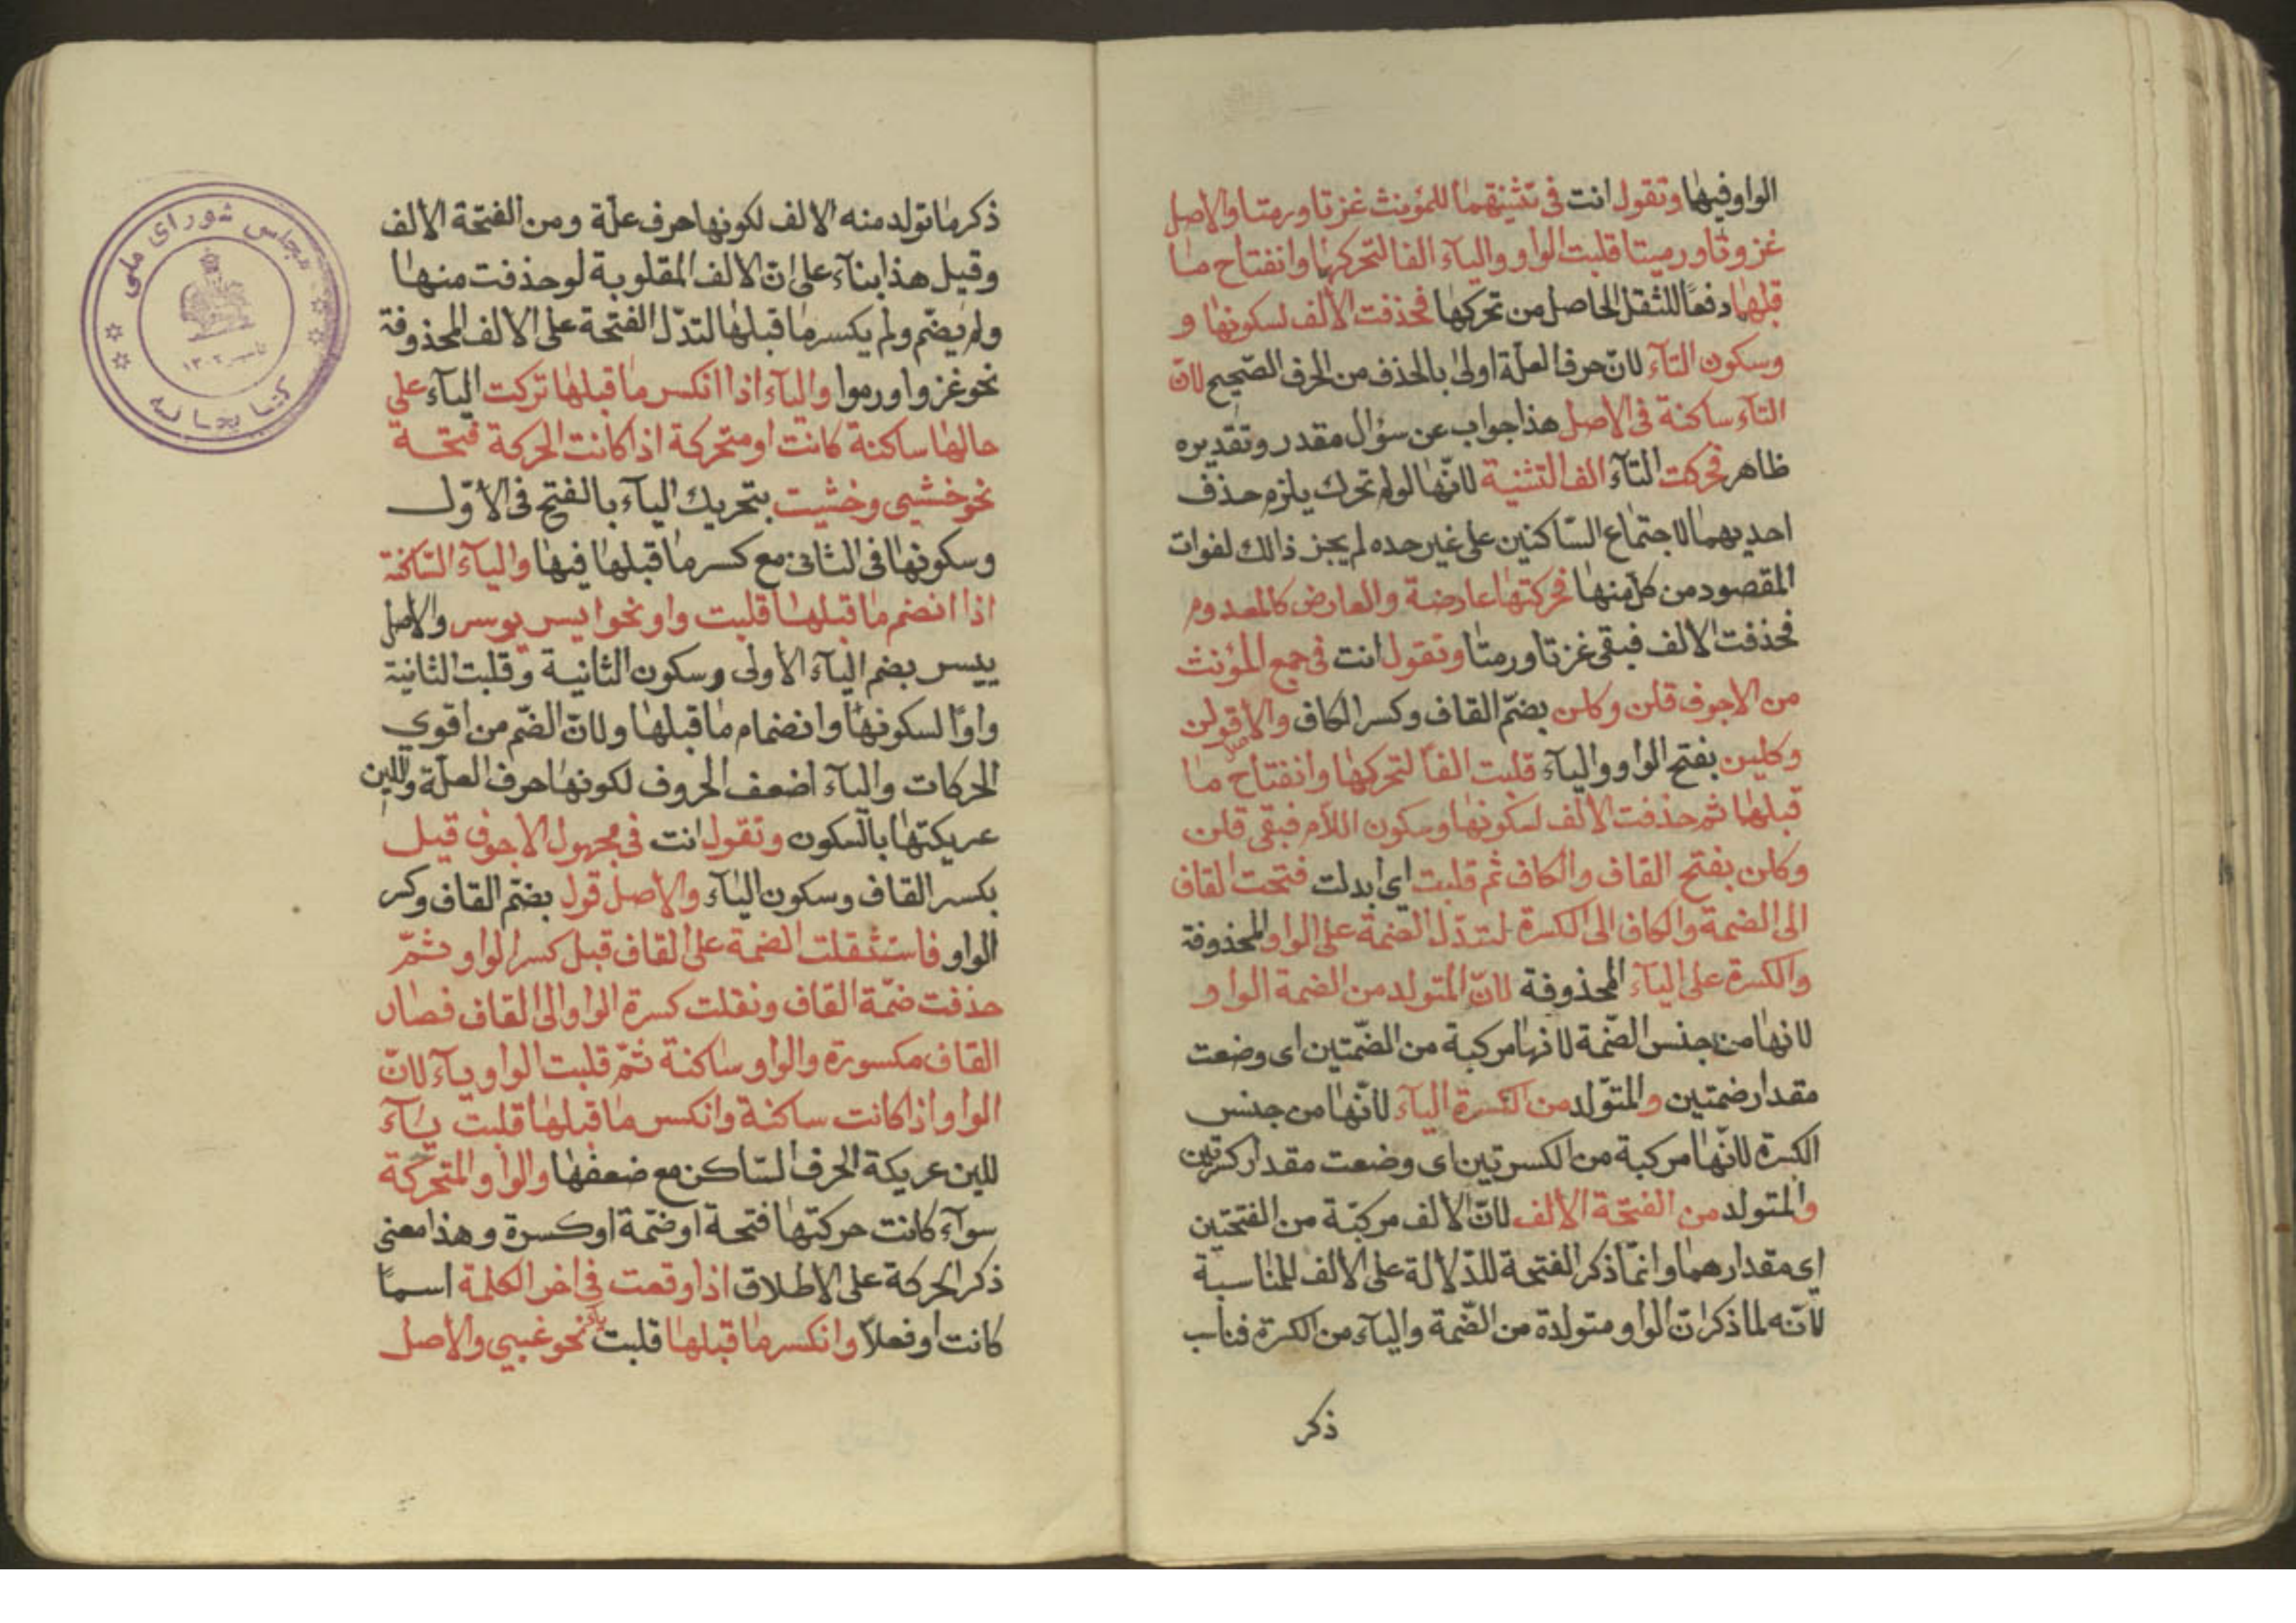 الواو فيها وتقول انت في تثنيتهما للمؤنث غزتا ورمتا والاصل
غزوتا ورميتا قلبت الواو والياء الفا لتحركهما وانفتاح ما
قبلها دفعًا للثقل الحاصل من تحركها فحذفت الالف لسكونها و
وسكون التآء لانّ حرف العلّة اولىٰ بالحذف من الحرف الصّحيح لانّ
التآء ساكنة في الاصل هذا جواب عن سؤال مقدر وتقديره
ظاهر فحركت التآء الف التثنية لانّها لو لم تحرك يلزم حذف
احديهما لاجتماع السّاكنين على غير حده لم يجز ذالك لفوات
المقصود من كل منها فحركتها عارضة والعارض كالمعدوم
فحذفت الالف فبقى غزتا ورمتا وتقول انت في جمع المؤنث
من الاجوف قلن وكلن بضمّ القاف وكسر الكاف والاصل قولن
وكلين بفتح الواو والياء قلبت الفاً لتحركها وانفتاح ما
قبلها ثم حذفت الالف لسكونها وسكون اللام فبقى قلن
وكلن بفتح القاف والكاف ثم قلبت اي ابدلت فتحت القاف
الى الضمة والكاف الى الكسرة لتدّل الضمة على الواو المحذوفة
والكسرة على اليآء المحذوفة لانّ المتولد من الضمة الواو
لانها من جنس الضّمة لانها مركبة من الضّمتين اى وضعت
مقدار ضمتين والمتّولد من الكسرة اليآء لانّها من جنس
الكسرة لانّها مركبة من الكسرتين اى وضعت مقدار كسرتين
والمتولد من الفتحة الالف لانّ الالف مركبّة من الفتحتين
اى مقدارهما وانمّا ذكر الفتحة للدّلالة على الالف للمناسبة
لانّه لما ذكر انّ الواو متولدة من الضّمة والياء من الكسرة فناسب
ذكر
ذكر ما تولد منه الالف لكونها حرف علّة ومن الفتحة الالف
وقيل هذا بنآء على انّ الالف المقلوبة لو حذفت منها
ولم يضّم ولم يكسر ما قبلها لتدّل الفتحة على الالف المحذوفة
نحو غزوا ورموا واليآء اذا انكسر ما قبلها تركت اليآء على
حالها ساكنة كانت او متحركة اذا كانت الحركة فتحة
نحو خشيى وخشيت بتحريك اليآء بالفتح فى الاوّل
وسكونها فى الثانى مع كسر ما قبلها فيها واليآء السّاكنة
اذا انضم ما قبلها قلبت واو نحو ايسر يوسر والاصل
ييسر بضم اليآء الاولى وسكون الثانية وقلبت الثانية
واوًا لسكونها وانضمام ما قبلها ولانّ الضّم من اقوي
الحركات واليآء اضعف الحروف لكونها حرف العلّة وللين
عريكتها بالسكون وتقول انت في مجهول الاجوف قيل
بكسر القاف وسكون اليآء والاصل قول بضمّ القاف وكسر
الواو فاستثقلت الضمة على القاف قبل كسر الواو ثمّ
حذفت ضمّة القاف ونقلت كسرة الواو الى القاف فصار
القاف مكسورة والواو ساكنة ثمّ قلبت الواو يآء لانّ
الواو اذا كانت ساكنة وانكسر ما قبلها قلبت يآء
للين عريكة الحرف السّاكن مع ضعفها والواو المتحركة
سوآء كانت حركتها فتحة او ضمّة او كسرة وهذا معنى
ذكر الحركة على الاطلاق اذا وقعت في اخر الكلمة اسمًا
كانت او فعلاً وانكسر ما قبلها قلبت يآء نحو غبيى والاصل
مجلس شوراى ملى
تأسيس ١٣٠٢
كتابخانه